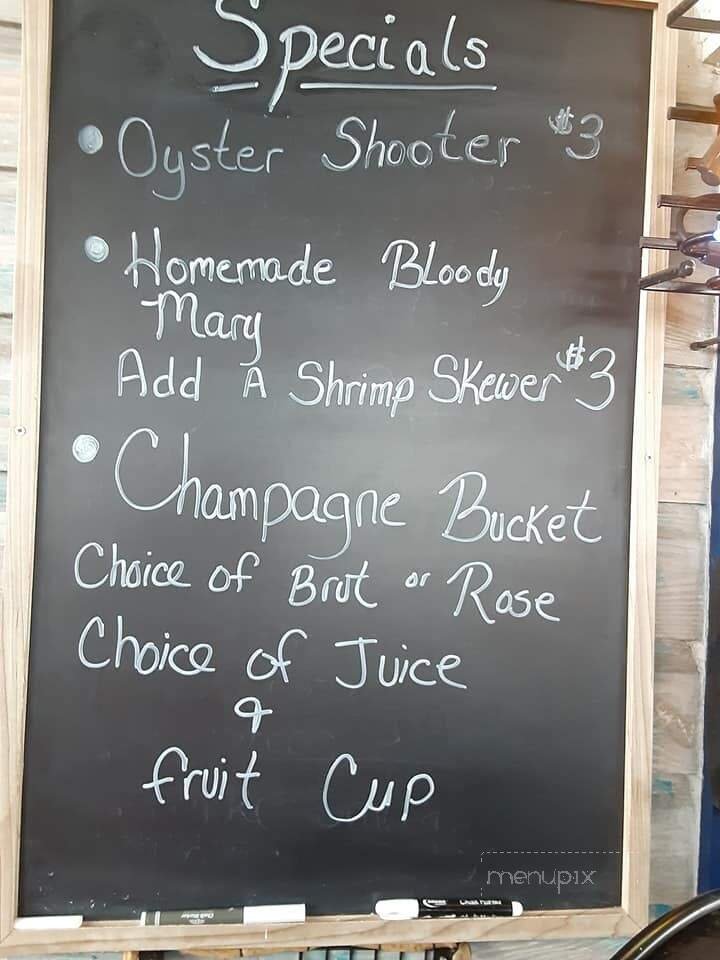 Specials
• Oyster Shooter $3
• Homemade Bloody
Mary
Add A Shrimp Skewer $3
• Champagne Bucket
Choice of Brut or Rose
Choice of Juice
&
fruit Cup
menupix